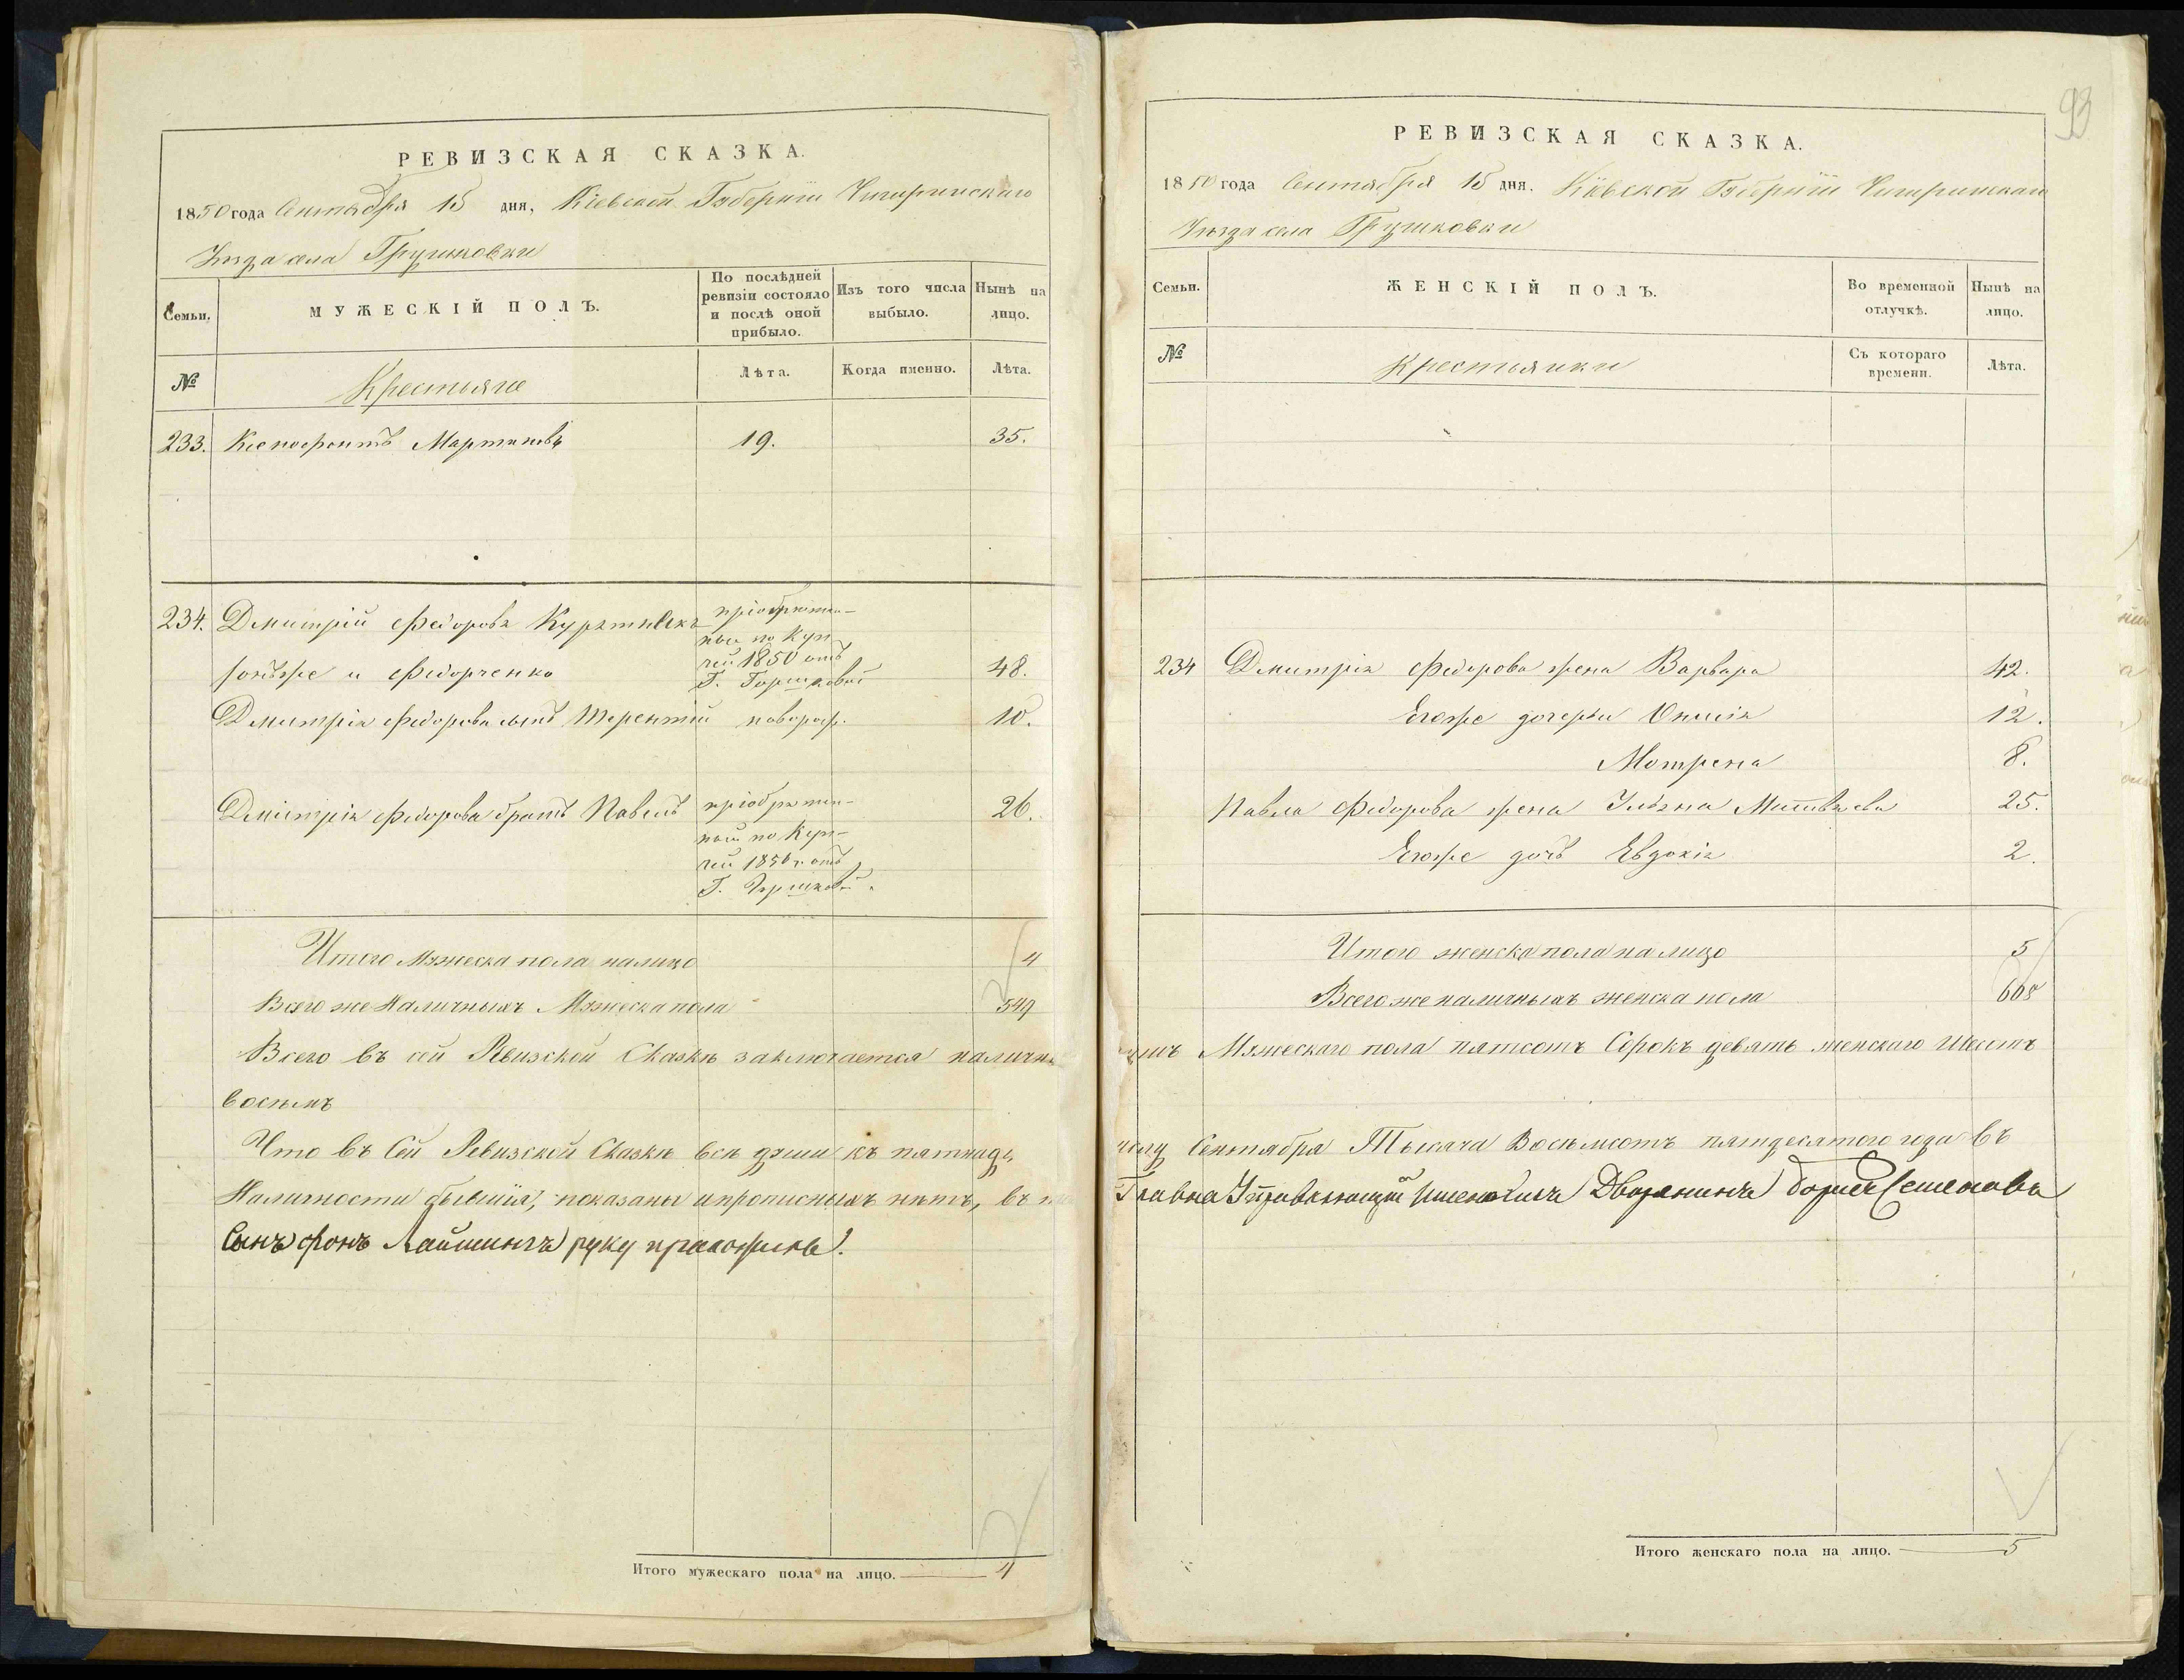 РЕВИЗСКАЯ СКАЗКА.
1850 года Сентября 15 дня, Кіевской Губерніи Чигиринскаго
Уѣзда села Грушковки
Семьи.
МУЖЕСКІЙ ПОЛЪ.
По послѣдней ревизіи состояло и послѣ оной прибыло.
Изъ того числа выбыло.
Нынѣ на лицо.
№
Крестьяне
Лѣта.
Когда именно.
Лѣта.
233. Ксенофонтъ Мартиновъ 19. 35.
234. Дмитрій Федоровъ пріобрѣтен-
ный по Куп
чей 1850 отъ
онъ же и Федорченко Г. Горшковой 48.
Дмитрія Федорова сынъ Терентій новорож. 10.
Дмитрія Федорова братъ Павелъ пріобрѣтен- 26.
ный по Куп-
чей 1850 г. отъ
Г. Горшковой.
Итого Мужеска пола налицо 4
Всего же Наличныхъ Мужеска пола 549
Всего въ сей Ревизской Сказкѣ заключается наличны
восѣмъ
Что въ Сей Ревизской Сказкѣ всѣ души къ пятнадц
Наличности бывшія, показаны и прописныхъ нѣтъ, въ
Сынъ фонъ руку приложилъ.
Итого мужескаго пола на лицо. 4
93
РЕВИЗСКАЯ СКАЗКА.
1850 года Сентября 15 дня. Кіевской Губерніи Чигиринскаго
Уѣзда села Грушковки
Семьи.
ЖЕНСКІЙ ПОЛЪ.
Во временной отлучкѣ.
Нынѣ на лицо.
№
Крестьянки
Съ котораго времени.
Лѣта.
234 Дмитрія Федорова жена Варвара 42.
Егоже дочерьи 12.
Мотрена 8.
Павла Федорова жена Ульяна 25.
Егоже дочь Евдокія 2.
Итого женска пола на лицо 5
Всего же наличныхъ женска пола 608
Мужескаго пола пятсотъ Сорокъ девять женскаго шесотъ
Сентября Тысяча Восѣмсотъ пятдесятого года въ
Главна Управляющій Имениемъ Дворянинъ Борисъ Семенова
Итого женскаго пола на лицо. 5